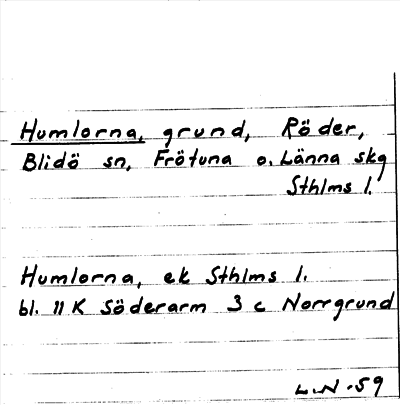 Humlorna, grund, Röder,
Blidö sn, Frötuna o. Länna skg
Sthlms l.
Humlorna, ek Sthlms l.
bl. 11 K Söderarm 3 c Norrgrund
L.N -59